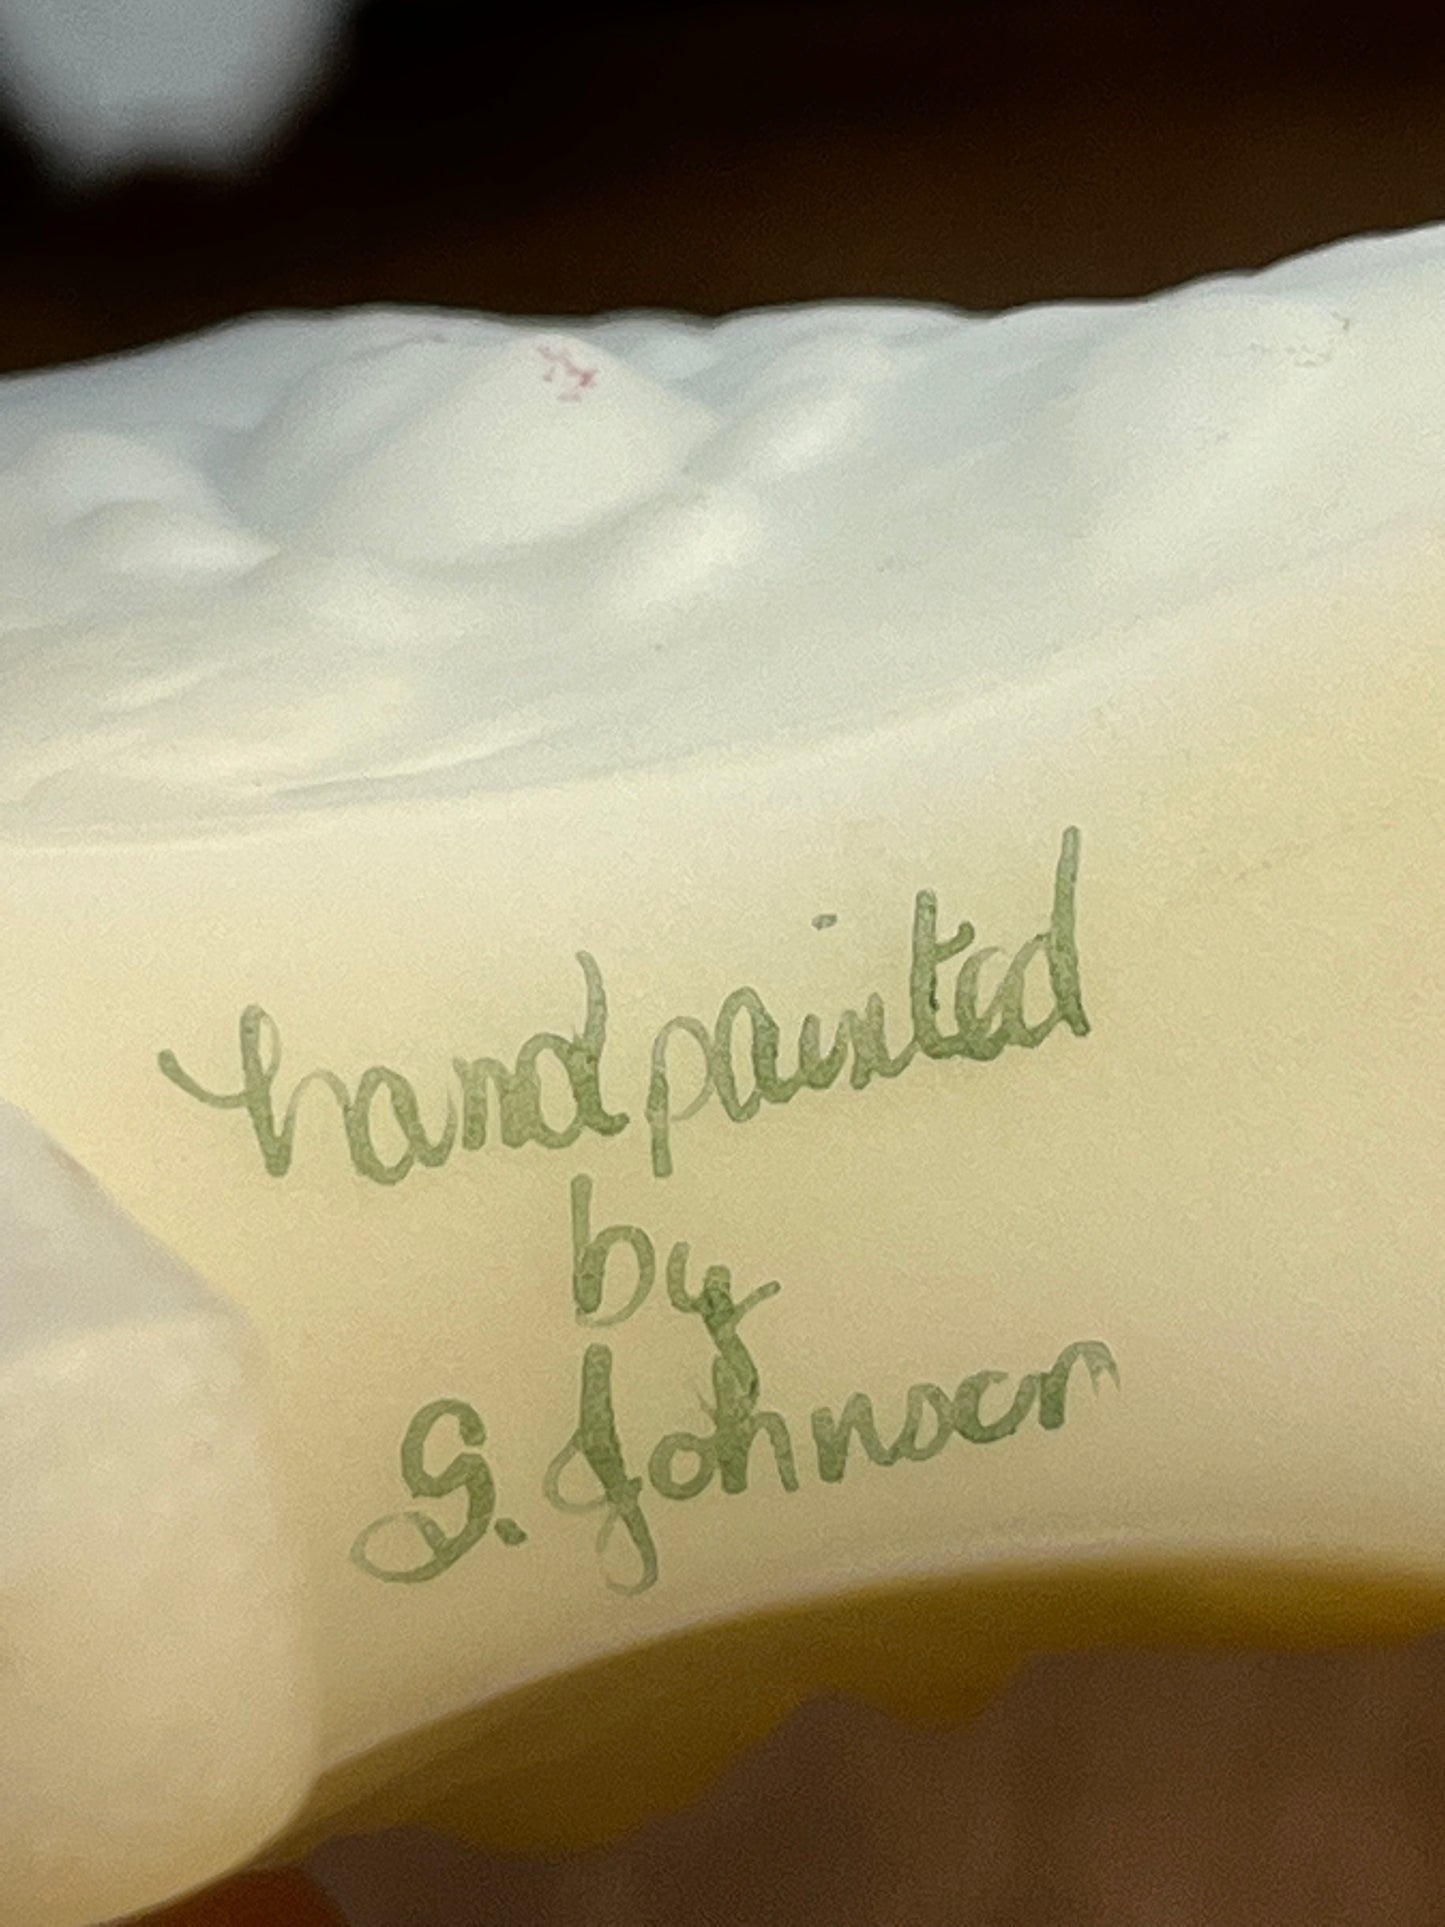 hand painted
by
S. Johnson